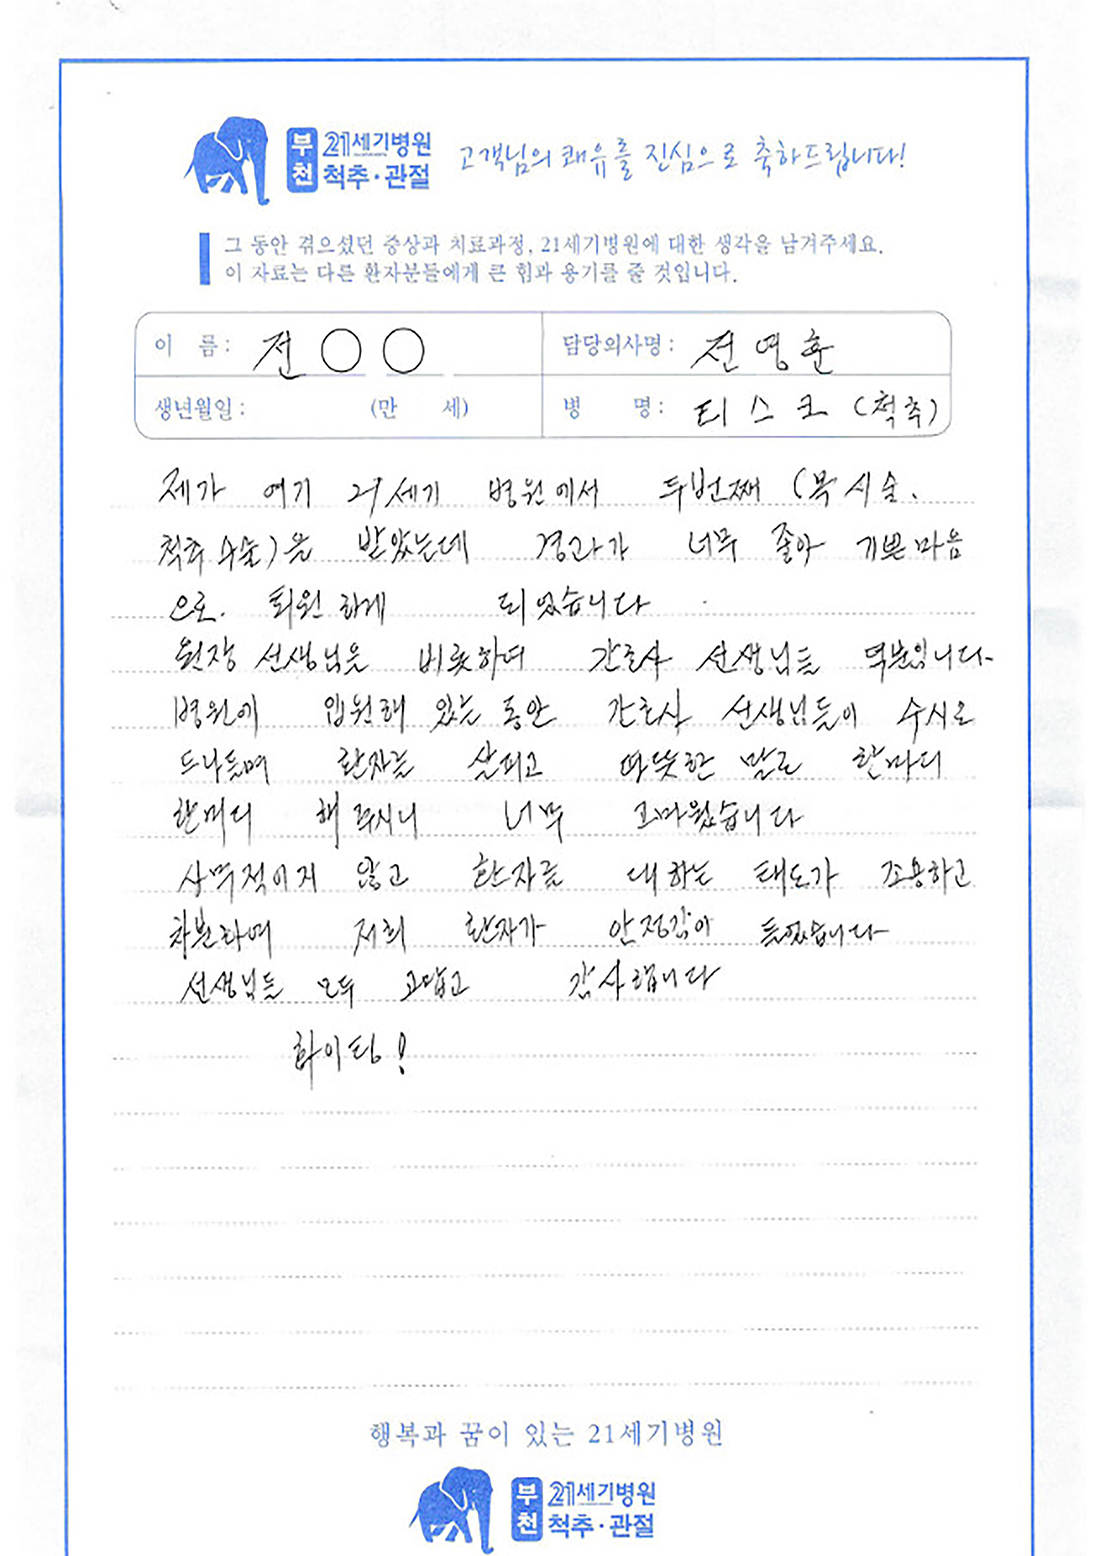 부천 21세기병원 척추·관절 고객님의 쾌유를 진심으로 축하드립니다!
그 동안 겪으셨던 증상과 치료과정, 21세기병원에 대한 생각을 남겨주세요.
이 자료는 다른 환자분들에게 큰 힘과 용기를 줄 것입니다.
이 름: 전○○ 담당의사명: 전영훈
생년월일: (만 세) 병 명: 디스크(척추)
제가 여기 21세기 병원에서 두번째 (목 시술.
척추 수술)을 받았는데 경과가 너무 좋아 기쁜 마음
으로. 퇴원 하게 되었습니다.
원장 선생님을 비롯하여 간호사 선생님들 덕분입니다.
병원에 입원해 있는 동안 간호사 선생님들이 수시로
드나들며 환자를 살피고 따뜻한 말로 한마디
한마디 해 주시니 너무 고마웠습니다
사무적이지 않고 환자를 대하는 태도가 조용하고
차분하며 저희 환자가 안정감이 들었습니다
선생님들 모두 고맙고 감사합니다
화이팅!
행복과 꿈이 있는 21세기병원
부천 21세기병원 척추·관절